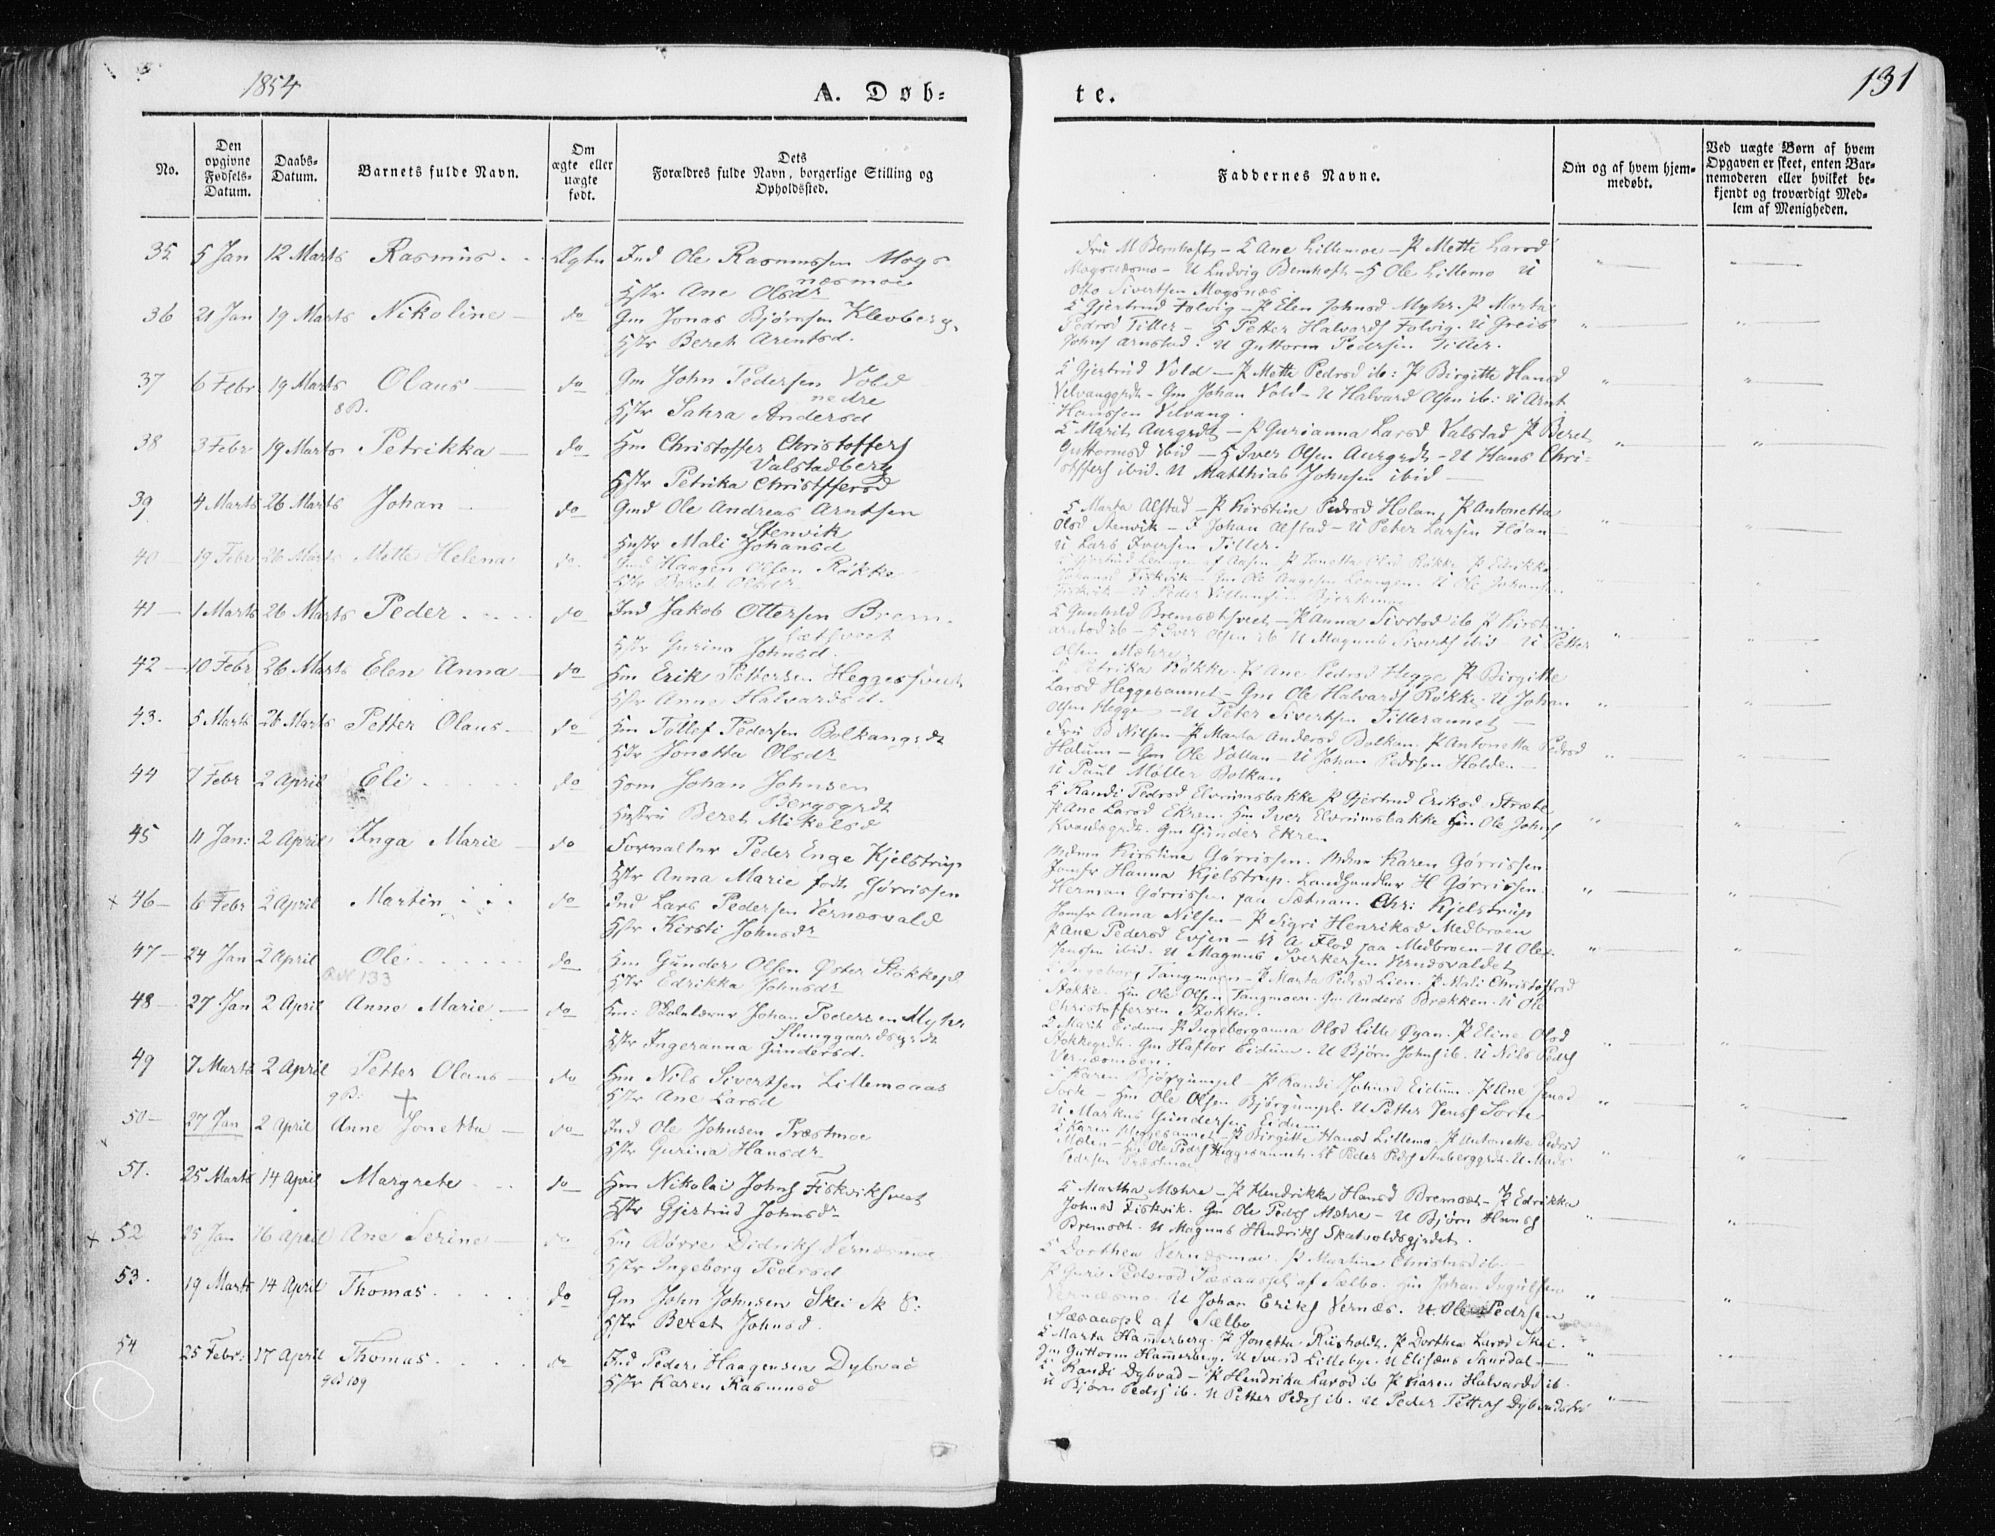 1854
A. Døb=
te.
131
No.
Den opgivne Fødsels-Datum.
Daabs-Datum.
Barnets fulde Navn.
Om ægte eller uægte født.
Dets Forældres fulde Navn, borgerlige Stilling og Opholdssted.
Faddernes Navne.
Om og af hvem hjemmedøbt.
Ved uægte Børn af hvem Opgaven er skeet, enten Barnemoderen eller hvilket bekjendt og troværdigt Medlem af Menigheden.
35 5 Jan 12 Marts Rasmus Ægte Ind Ole Rasmussen Mogs
næsmoe
Hstr Ane Olsdr
Fru M Bernhoft – K Ane Lillemoe – P Mette Larsd
Mogsnæsmo – U Ludvig Bernhoft – G Ole Lillemo U
Otto Sivertsen Mogsnæs.
36 21 Jan 19 Marts Nikoline do Gm Jonas Bjørnsen Klevberg.
Hstr Bereth Arentsd.
K Gjertrud Folvig – P Elen Johnsd Myhr. P Marta
Pedrsd Tiller – G Petter Halvards Folvig. U Greis
Johns Arnstad. U Guttorm Pedersen Tiller.
37 6 Febr 19 Marts Olaus do Gm John Pedersen Vold
8 B.
nedre
Hstr Sahra Andersd
K Gjertrud Vold – P Mette Pedrsd ib: P Birgitte Hansd
Velvanggrdt – Gm Johan Vold – U Halvard Olsen ib: U Arnt
Hanssen Velvang.
38 3 Febr 19 Marts Petrikka do Hm Christoffer Christoffers
Valstadberg
Hstr Petrika Christffersd
K Marit Aurgrdt – P Gurianna Larsd Valstad P Beret
Guttormsd ibid – G Iver Olsen Aurgrdt – U Hans Chri-
stffers ibid. U Matthias Johnsen ibid
39 4 Marts 26 Marts Johan do Gmd Ole Andreas Arntsen
Stenvik
Hustr Mali Johansd
K Marta Alstad – P Kirstine Pedrsd Holan, P Antonetta
Olsd Stenvik – G Johan Alstad – U Peter Larsen Hoan
U Lars Iversen Tiller.
40 19 Febr 26 Marts Mette Helena do. Ind Haagen Olsen Røkke
Hstr Beret Olsdr
41 1 Marts 26 Marts Peder do Ind Jakob Ottersen Brem-
sætsveet
Hstr Gurina Johnsd.
K Gunhild Bremsætsveet – P Anna Sivrtsd ib P Kirsten
Arntsd ib – G Iver Olsen ib U Magnus Siverts ibid – U Petter
Olsen Mæhre.
42 10 Febr 26 Marts Elen Anna do Hm Erik Pettersen Heggessveet
Hstr Anne Halvardsd.
K Petrika Røkke. P Ane Pedrsd Hegge P Birgitte
Larsd Heggesaunet – Gm Ole Halvards Røkke. U Johan
Olsen Hegge – U Peter Sivertsen Tilleraunet
43. 5 Marts 26 Marts Petter Olaus do Hm Tollef Pedersen Bolkangrdt
Hstr Jonetta Olsdr
Fru B Nilsen – P Marta Andersd Bolkan. P Antonetta Pedrsd
Holum – Gm Ole Vollan – U Johan Pedrsen Holden
U Paul Møller Bolkan
44 7 Febr 2 April Eli do Hom Johan Johnsen
Bergsgrdt
Hustru Beret Mikelsd
K Randi Pedrsd Elvrumsbakke P Gjertrud Eriksd Stræte
P Ane Larsd Ekren. Hm Iver Elvrumsbakke Hm Ole Johns
Kvandsgrdt. Gm Gunder Ekren
45 11 Jan: 2 April Inga Marie do Forvalter Peder Enge Kjelstrup
Hstr Anna Marie født Gørrissen
Mdme Kirstine Gørrissen. Mdme Karen Gørrissen
Jomfr Hanna Kjelstrup. Landhandler H Gørrissen.
Herman Gørrissen paa Sætnan. Chri Kjelstrup
x 46 6 Febr 2 April Martin do Ind Lars Pedersen Vernesvald
Hstr Kirsti Johnsdr
Jomfr Anna Nilsen – P Sigri Henriksd Medbroen
P Ane Pedersd Evjen – U A Flod paa Medbroen – U Ole
Jenssen ibid. U Magnus Sverkersen Vernesvaldet
47 24 Jan 2 April Ole do Hm Gunder Olsen Øster Stokkepl
133
Hstr Edrikka Johnsdr
K Ingeborg Tangmoen – P Marta Pedrsd Lien. P Mali Christoffersd
Stokke. Hm Ole Olsen Tangmoen. Gm Anders Brækken. U Ole
Christoffersen Stokke.
48 27 Jan 2 April Anne Marie do Hm: Skolelærer Johan Pedersen Myhr
Slunggaardsgrdt
Hstr Ingeranna Gundersd.
K Marit Eidum P Ingeborganna Olsd Lille Øyan. P Eline Olsd
Stokkegrdt. Gm Haftor Eidum. U Bjørn Johns ib. U Nils Peders
Vernesmoen.
49 7 Marts 2 April Petter Olaus do Hm Nils Sivertsen Lillemoaas
9 B.
Hstr Ane Larsd
K Karen Bjørgumpl – P Randi Johnsd Eidum. P Ane Jensd
Sorte – Hm Ole Olsen Bjørgumpl. U Petter Jens Sorte
U Markus Gundersen Eidum
50 27 Jan 2 April Anne Jonetta do Ind Ole Johnsen Præstmoe
Hstr Gurina Hansdr
K Karen Heggesaunet – P Birgitte Hansd Lillemo. P Antonette Pedrsd
Mælen – Hm Ole Peders Heggesaunet. U Peder Peders Stubergrdt. U Mads
Pedersen Præstmoe
51. 25 Marts 14 April Margrete do Hm Nikolai Johns Fiskviksveet
Hstr Gjertrud Johnsdr
K Martha Mæhre – P Hendrikka Hansd Bremset – P Edrikka
Johnsd Fiskvik. Gm Ole Peders Mæhre – U Bjørn Hanss
Bremset. U Magnus Hendriks Skatvoldsgjrdet.
x 52 25 Jan 16 April Ane Serine do Hm Børre Didriks Vernesmoe
Hstr Ingeborg Pedrsd
K Dorthea Vernesmoe. P Martina Christnsd ib.
P Guri Pedersd af Selbo. Gm Johan Ingulfsen
Vernesmo. U Johan Eriks Vernæs. U Ole Pedrsen
af Selbo
53. 19 Marts 14 April Thomas do Gm John Johnsen Skei
Hstr Beret Johnsd.
K Marta Hammerberg. P Jonetta Risholdt. P Dorthea Larsd Skei.
Gm Guttorm Hammerberg. U Sverd Lillebye. U Elisæus Skurdal
54 25 Febr: 17 April Thomas do Ind Peder Haagensen Dybvad
109
Hstr Karen Rasmusd
K Randi Dybvad – P Hendrika Larsd ib P Karen Halvardsd ib.
U Bjørn Peders ib. U Petter Peders ib. U Peder Petters Dybvad